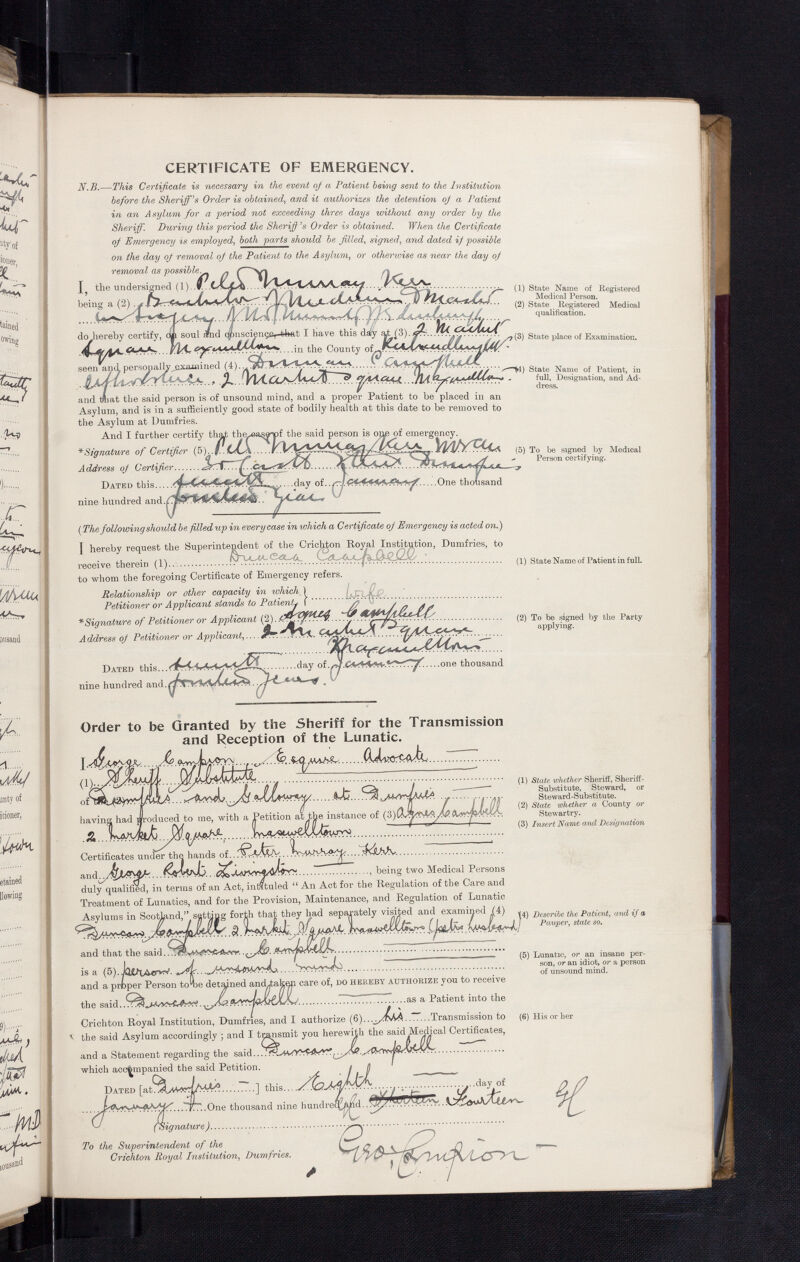 CERTIFICATE OF EMERGENCY.
N.B.—This Certificate is necessary in the event of a Patient being sent to the Institution
before the Sheriff's Order is obtained, and it authorizes the detention of a Patient
in an Asylum for a period not exceeding three days without any order by the
Sheriff. During this period the Sheriff's Order is obtained. When the Certificate
of Emergency is employed, both parts should be filled, signed, and dated if possible
on the day of removal of the Patient to the Asylum, or otherwise as near the day of
removal as possible.
I, the undersigned (1) Peter Murray Kerr
(1) State Name of Registered
Medical Person.
being a (2) Bachelor of Medicine & Master
(2) State Registered Medical
qualification.
in Surgery of the University of Edinburgh
do hereby certify, on soul and conscience, that I have this day at (3) 2 Market
(3) State place of Examination.
Square Maxwelltown in the County of Kirkcudbright
seen and personally examined (4) Duncan Campbell
(4) State Name of Patient, in
full, Designation, and Ad-
dress.
2 Market Square Maxwelltown
and that the said person is of unsound mind, and a proper Patient to be placed in an
Asylum, and is in a sufficiently good state of bodily health at this date to be removed to
the Asylum at Dumfries.
And I further certify that the case of the said person is one of emergency.
*Signature of Certifier (5) Peter Murray Kerr
(5) To be signed by Medical
Person certifying.
Address of Certifier Castle Street Dumfries
DATED this seventh day of January One thousand
nine hundred and fourteen Years
(The following should be filled up in every case in which a Certificate of Emergency is acted on.)
I hereby request the Superintendent of the Crichton Royal Institution, Dumfries, to
receive therein (1) Duncan Campbell
(1) State Name of Patient in full.
to whom the foregoing Certificate of Emergency refers.
Relationship or other capacity in which
Petitioner or Applicant stands to Patient, } Wife
*Signature of Petitioner or Applicant (2) Agnes Campbell
(2) To be signed by the Party
applying.
Address of Petitioner or Applicant, 2 Market Square
Maxwelltown
DATED this seventh day of January one thousand
nine hundred and fourteen years.
Order to be Granted by the Sheriff for the Transmission
and Reception of the Lunatic.
I George Campion, Esquire Advocate
(1) Sheriff Substitute
(1) State whether Sheriff, Sheriff-
Substitute, Steward, or
Steward-Substitute.
of Dumfries and Galloway at Dumfries
(2) State whether a County or
Stewartry.
having had produced to me, with a Petition at the instance of (3) Agnes Campbell
(3) Insert Name and Designation
2 Market Square, Maxwelltown
Certificates under the hands of Peter Murray Kerr
and George Robert Livingston, being two Medical Persons
duly qualified, in terms of an Act, intituled "An Act for the Regulation of the Care and
Treatment of Lunatics, and for the Provision, Maintenance, and Regulation of Lunatic
Asylums in Scotland," setting forth that they had separately visited and examined (4)
(4) Describe the Patient, and if a
Pauper, state so.
Duncan Campbell 2 Market Square Maxwelltown (petrs husband)
and that the said Duncan Campbell
is a (5) person of unsound mind
(5) Lunatic, or an insane per-
son, or an idiot, or a person
of unsound mind.
and a proper Person to be detained and taken care of, DO HEREBY AUTHORIZE you to receive
the said Duncan Campbell as a Patient into the
Crichton Royal Institution, Dumfries, and I authorize (6) his Transmission to
(6) His or her
the said Asylum accordingly; and I transmit you herewith the said Medical Certificates,
and a Statement regarding the said Duncan Campbell
which accompanied the said Petition.
DATED [at Dumfries] this Eighth day of
January One thousand nine hundred and Thirteen Fourteen GC
(Signature)
To the Superintendent of the
Crichton Royal Institution, Dumfries.
Geo. Campion